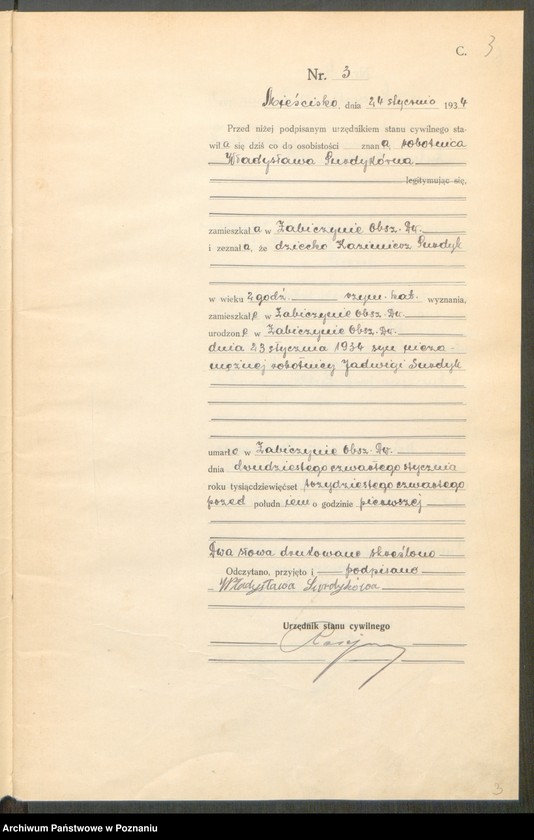 C. 3
Nr. 3
Mieścisko, dnia 24 stycznia 1934
Przed niżej podpisanym urzędnikiem stanu cywilnego sta-
wiła się dziś co do osobistości znana, robotnica
Władysława Surdykówna
legitymując się,
zamieszkała w Zabiczynie Obsz. Dw.
i zeznała, że dziecko Kazimierz Surdyk
w wieku 2 godz. rzym. kat. wyznania,
zamieszkałe w Zabiczynie Obsz. Dw.
urodzone w Zabiczynie Obsz. Dw.
dnia 23 stycznia 1934 syn nieza-
mężnej robotnicy Jadwigi Surdyk
umarłe w Zabiczynie Obsz. Dw.
dnia dwudziestego czwartego stycznia
roku tysiącdziewięćset trzydziestego czwartego
przed południem o godzinie pierwszej
Dwa słowa drukowane skreślono
Odczytano, przyjęto i podpisano
Władysława Surdykówna
Urzędnik stanu cywilnego
3
Archiwum Państwowe w Poznaniu